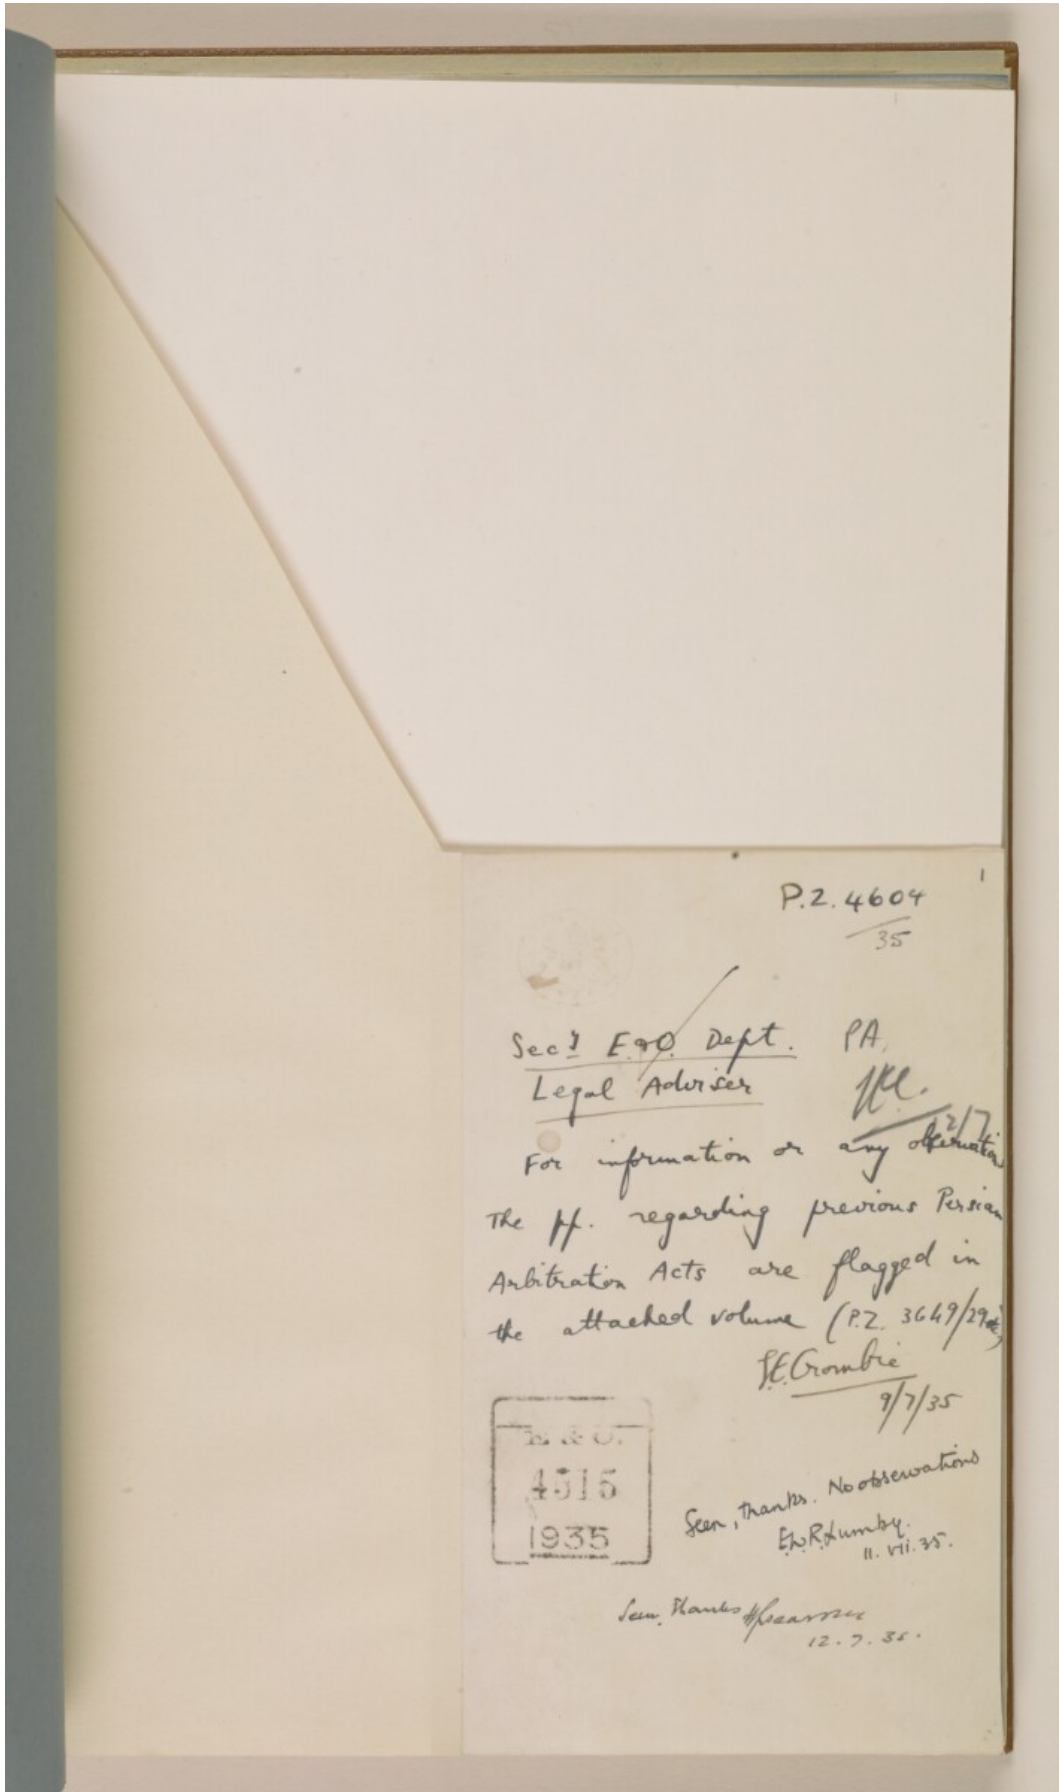 1
P.Z. 4604
35
Secy E&O. Dept. PA.
Legal Adviser
12/7
For information or any observations
The pp. regarding previous Persian
Arbitration Acts are flagged in
the attached volume (P.Z. 3649/29 etc)
J.E. Crombie
9/7/35
E & O.
4515
1935
Seen, thanks. No observations
E.W.R. Lumby.
11. VII. 35.
Seen, Thanks
12. 7. 35.